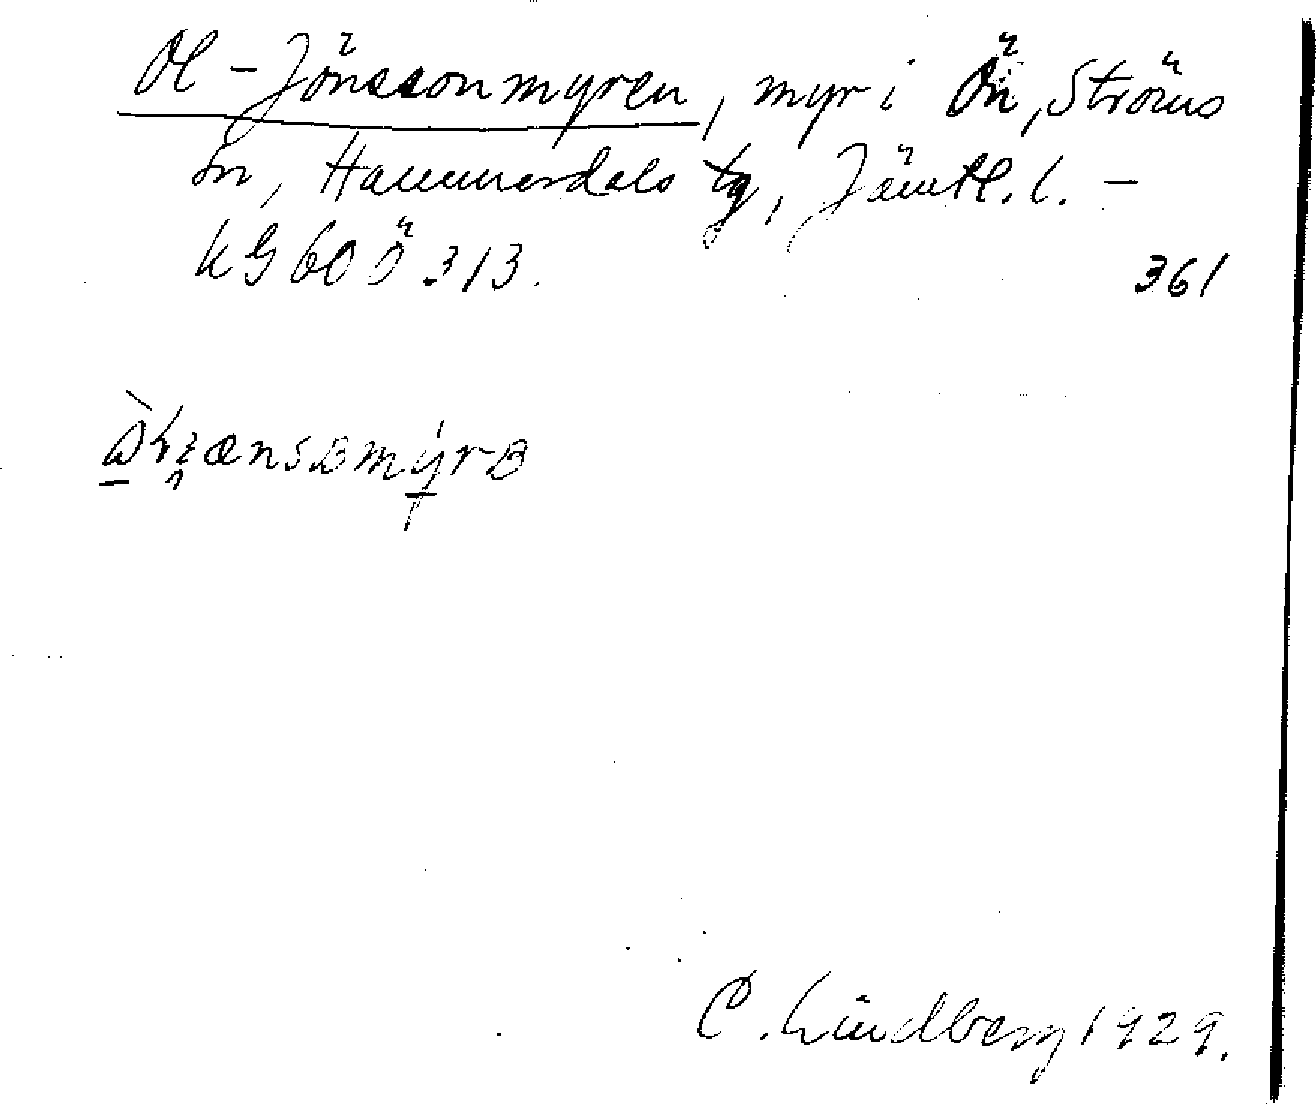 Ol-Jönssonmyren, myr i Ön, Ströms
sn, Hammerdals tg, Jämtl. l. –
KG 60 Ö 313.
361
C. Lindberg 1929.